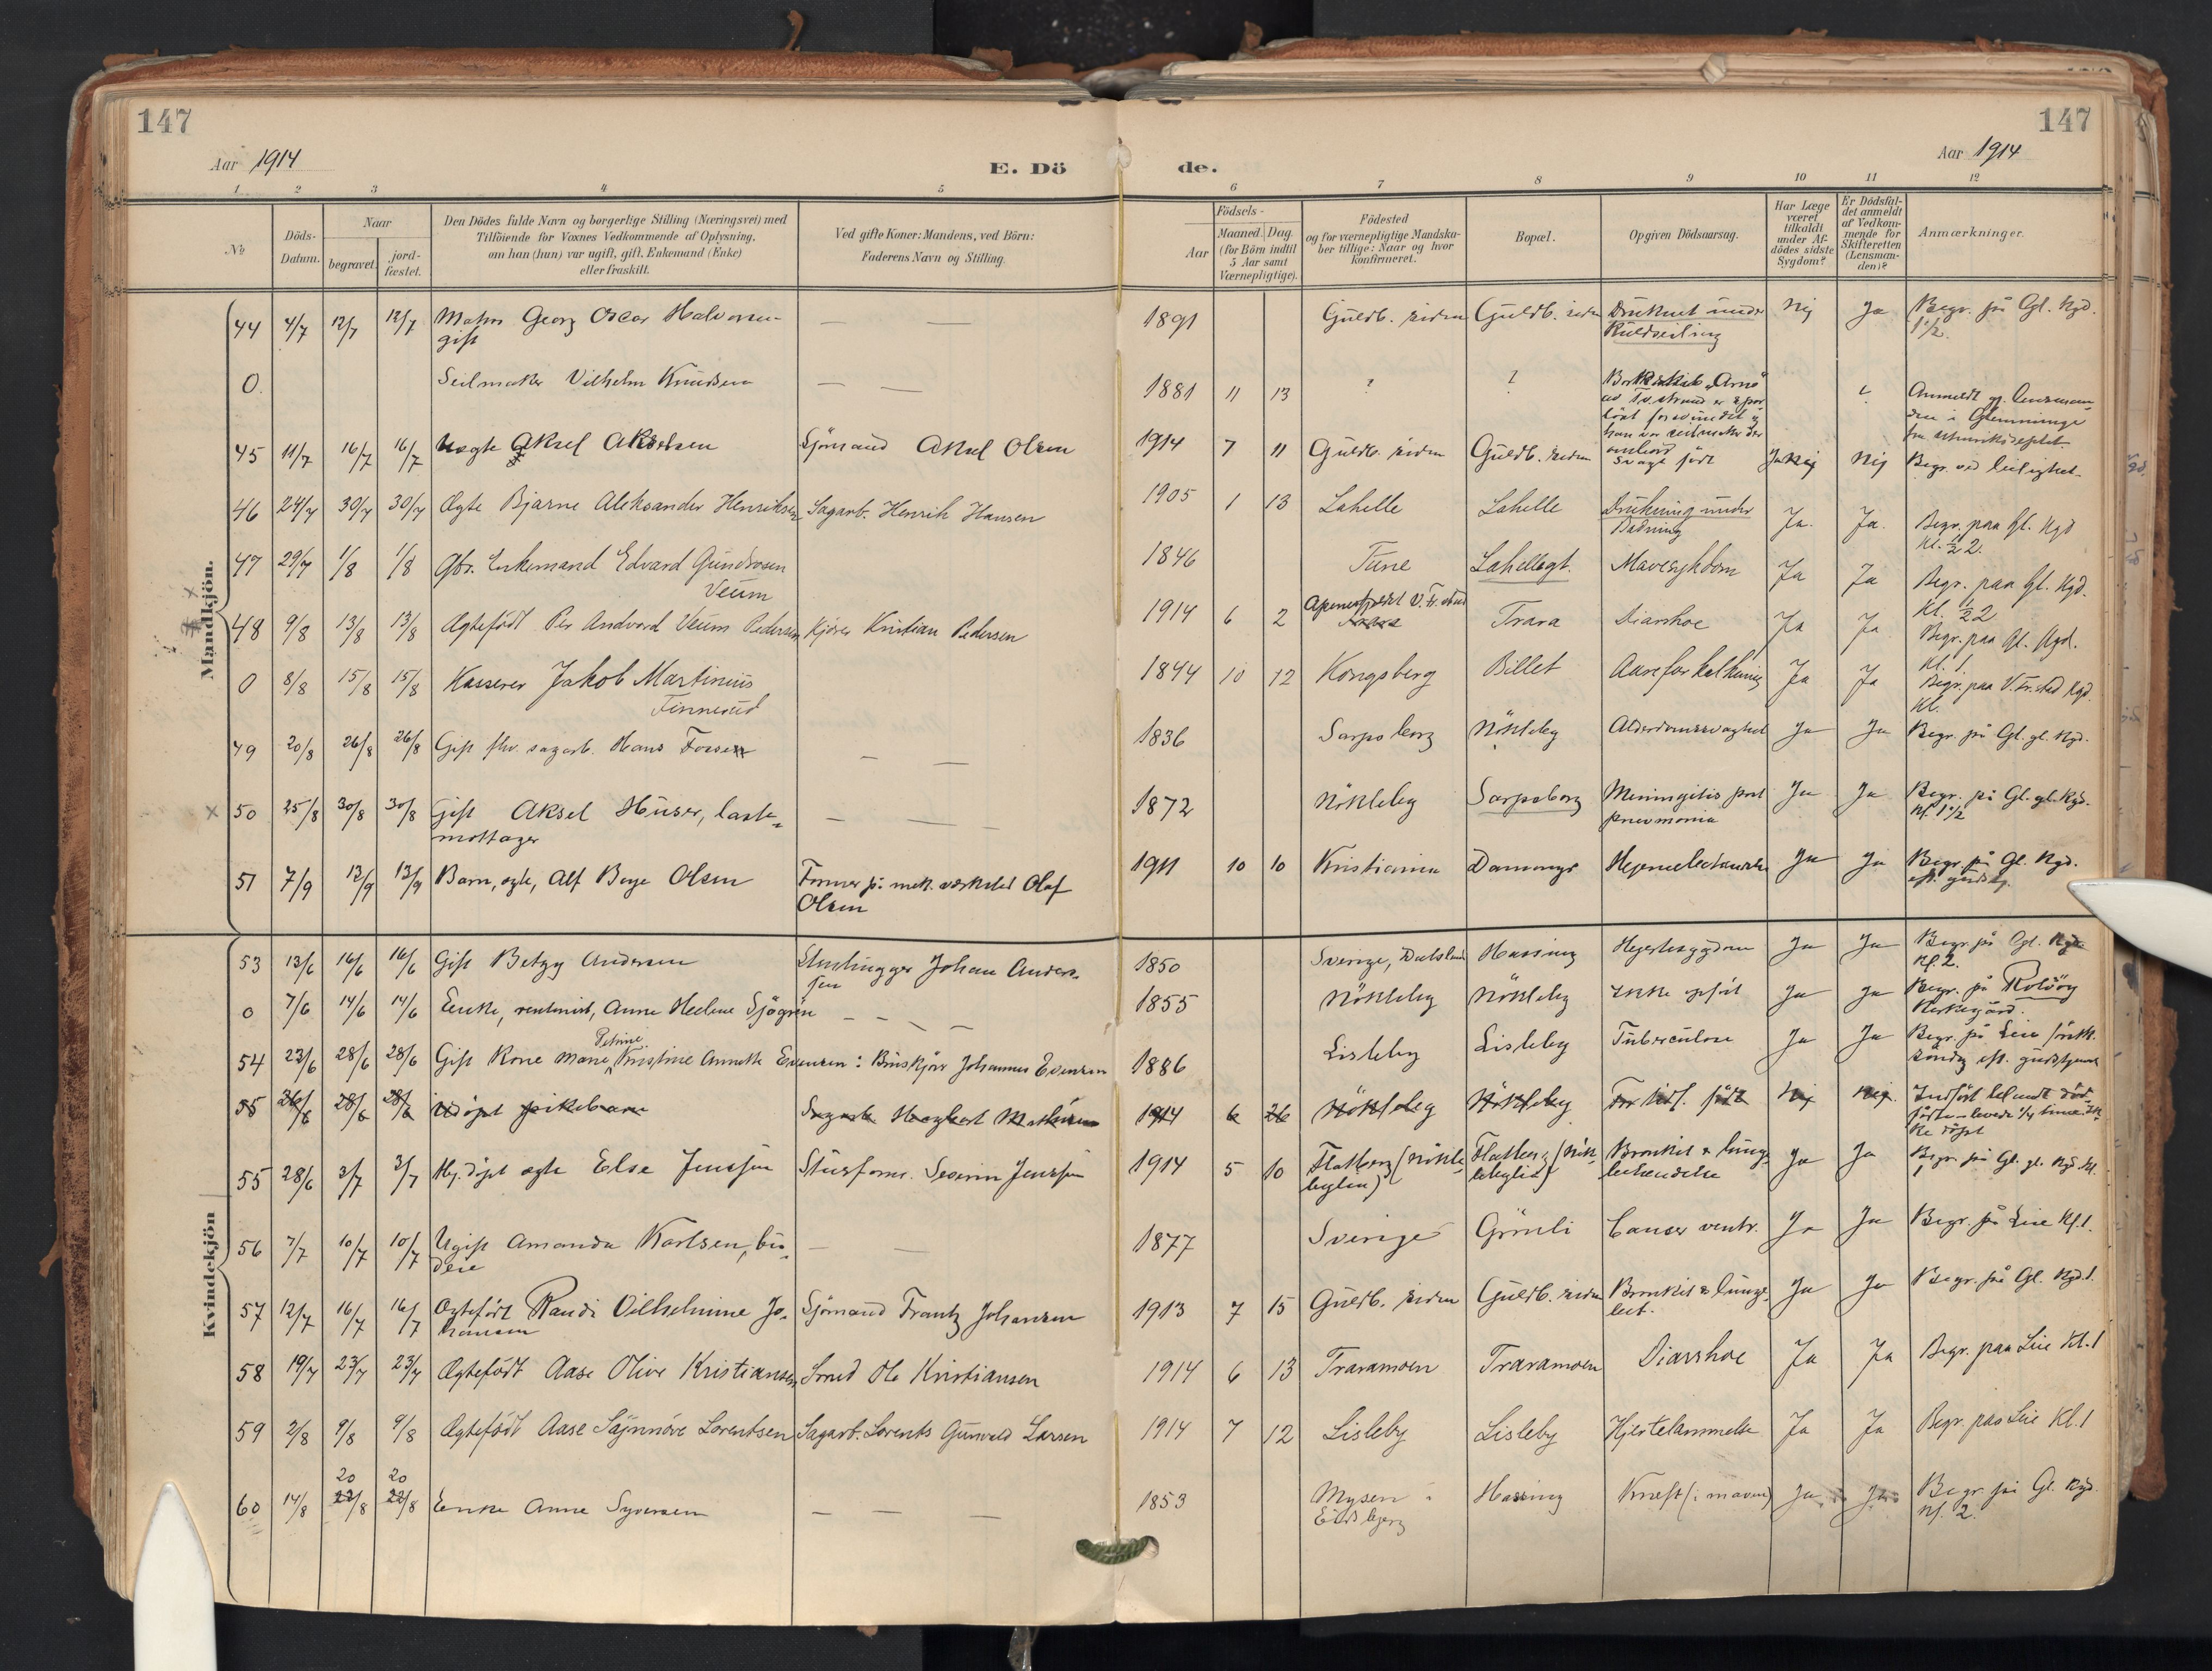 147
147
Aar 1914
E. Dö
de.
Aar 1914
1 2 3 4 5 6 7 8 9 10 11 12
No
Döds-
Datum.
Naar
begravet.
jord-
fæstet.
Den Dödes fulde Navn og borgerlige Stilling (Næringsvei) med
Tilföiende for Voxnes Vedkommende af Oplysning,
om han (hun) var ugift, gift, Enkemand (Enke)
eller fraskilt.
Ved gifte Koner: Mandens, ved Börn:
Faderens Navn og Stilling.
Födsels-
Aar
Maaned. Dag
(for Börn indtil
5 Aar samt
Værnepligtige).
Födested
og for værnepligtige Mandska-
ber tillige: Naar og hvor
konfirmeret.
Bopæl.
Opgiven Dödsaarsag.
Har Læge
været
tilkaldt
under Af-
dödes sidste
Sygdom?
Er Dödsfal-
det anmeldt
af Vedkom-
mende for
Skifteretten
(Lensman-
den)?
Anmærkninger.
Mandkjön.
44 4/7 12/7 12/7 Matros Georg Oscar Halvorsen — — 1891 Guldb. siden Guldb. siden Druknet under Nej Ja Begr. på Gl. Kgd.
gift
Kuldseiling
1 1/2
0 Seilmaker Vilhelm Knudsen — — 1881 11 13 ? ?
45 11/7 16/7 16/7 uægte Aksel Akselsen Sjömand Aksel Olsen 1914 7 11 Guldb. siden Guldb. siden Svagt födt Nej Begr. ved leilighet.
46 24/7 30/7 30/7 Ægte Bjarne Aleksander Henriksen Sagarb. Henrik Hansen 1905 1 13 Lahelle Lahelle Drukning under Ja. Ja. Begr. paa Gl. Kgd
Badning
Kl. 1/2 2.
47 29/7 1/8 1/8 Gbr. Enkemand Edvard Gundrosen 1846 Tune Lahellegt. Mavesykdom Ja Ja Begr. paa Gl. Kgd.
Veum
Kl. 1/2 2
48 9/8 13/8 13/8 Ægtefödt Per Andvord Veum Pedersen Kjörer Kristian Pedersen 1914 6 2 Trara Diarrhoe Ja Ja Begr. paa Gl. Kgd.
Kl. 1
0 8/8 15/8 15/8 Kasserer Jakob Martinius 1844 10 12 Kongsberg Billet Aareforkalkning Ja Ja Begr. paa V. Fr.sted Kgd.
Finnerud
Kl.
49 20/8 26/8 26/8 Gift fhv. sagarb. Hans Fossen — — 1836 Sarpsborg Nökleby Alderdomssvaghed Ja Ja Begr. på Gl. gl. Kgd.
50 25/8 30/8 30/8 Gift Aksel Huser, laste- — — — 1872 Nökleby Sarpsborg Meningitis post Ja Ja Begr. på Gl. gl. Kgd.
mottager
pneumonia
Kl. 1 1/2
51 7/9 13/9 13/9 Barn, ægte, Alf Olsen Former på mek. værksted Olaf 1911 10 10 Kristiania Ja Ja Begr. på Gl. Kgd.
Olsen
eft. gudstj.
Kvindekjön
53 13/6 16/6 16/6 Gift Betzy Andersen JohanAnder- 1850 Sverige, Hassing Hjertesygdom Ja Ja Begr. på Gl. Kgd.
sen
Kl. 2.
0 7/6 14/6 14/6 Enke, rentenist, Anne Helene Sjögrén — — — — 1855 Nökleby Nökleby Ikke opført Ja Ja Begr. på Rolsöy
Kirkegård.
Petrine
54 23/6 28/6 28/6 Gift Kone Marie, Kristine Annette Evensen: Johannes Evensen 1886 Lisleby Lisleby Tuberculose Ja Ja Begr. på Leie
söndag eft. gudstjeneste
55 26/6 28/6 28/6 Udöpt pikebarn 1914 6 26 Nökleby Nökleby For tidl. födt Nej Nej. Indfört blandt död-
födte - levede 1/4 time. Ik-
ke döpt
55 28/6 3/7 3/7 Hj. döpt ægte Else Jensen Severin Jensen 1914 5 10 Flatberg (Nökle- Flatberg (Nök- Bronkit & lunge- Ja Ja Begr. på Gl. gl. Kgd. Kl.
bylien)
lebylien)
betændelse
1
56 7/7 10/7 10/7 Ugift Amanda Karlsen, bu- — — 1877 Sverige Grönli Cancer ventr. Ja Ja Begr. på Leie Kl. 1.
deie
57 12/7 16/7 16/7 Ægtefödt Randi Vilhelmine Jo- Sjömand Frantz Johansen 1913 7 15 Guldb. siden Guldb. siden Bronkit & lunge- Ja Ja Begr. på Gl. Kgd. 1.
hansen
bet.
58 19/7 23/7 23/7 Ægtefödt Aase Olive Kristiansen Smed Ole Kristiansen 1914 6 13 Traramoen Traramoen Diarrhoe Ja Ja Begr. paa Leie Kl. 1
59 2/8 9/8 9/8 Ægtefödt Aase Synnöve Lorentsen Sagarb. Lorents Gunvald Larsen 1914 7 12 Lisleby Lisleby Hjertelammelse Ja Ja Begr. paa Leie Kl. 1
20 20
60 14/8 22/8 22/8 Enke Anne Syversen — — — 1853 Mysen i Hassing Kreft (i maven) Ja Ja Begr. på Gl. Kgd.
Eidsberg
Kl. 2.